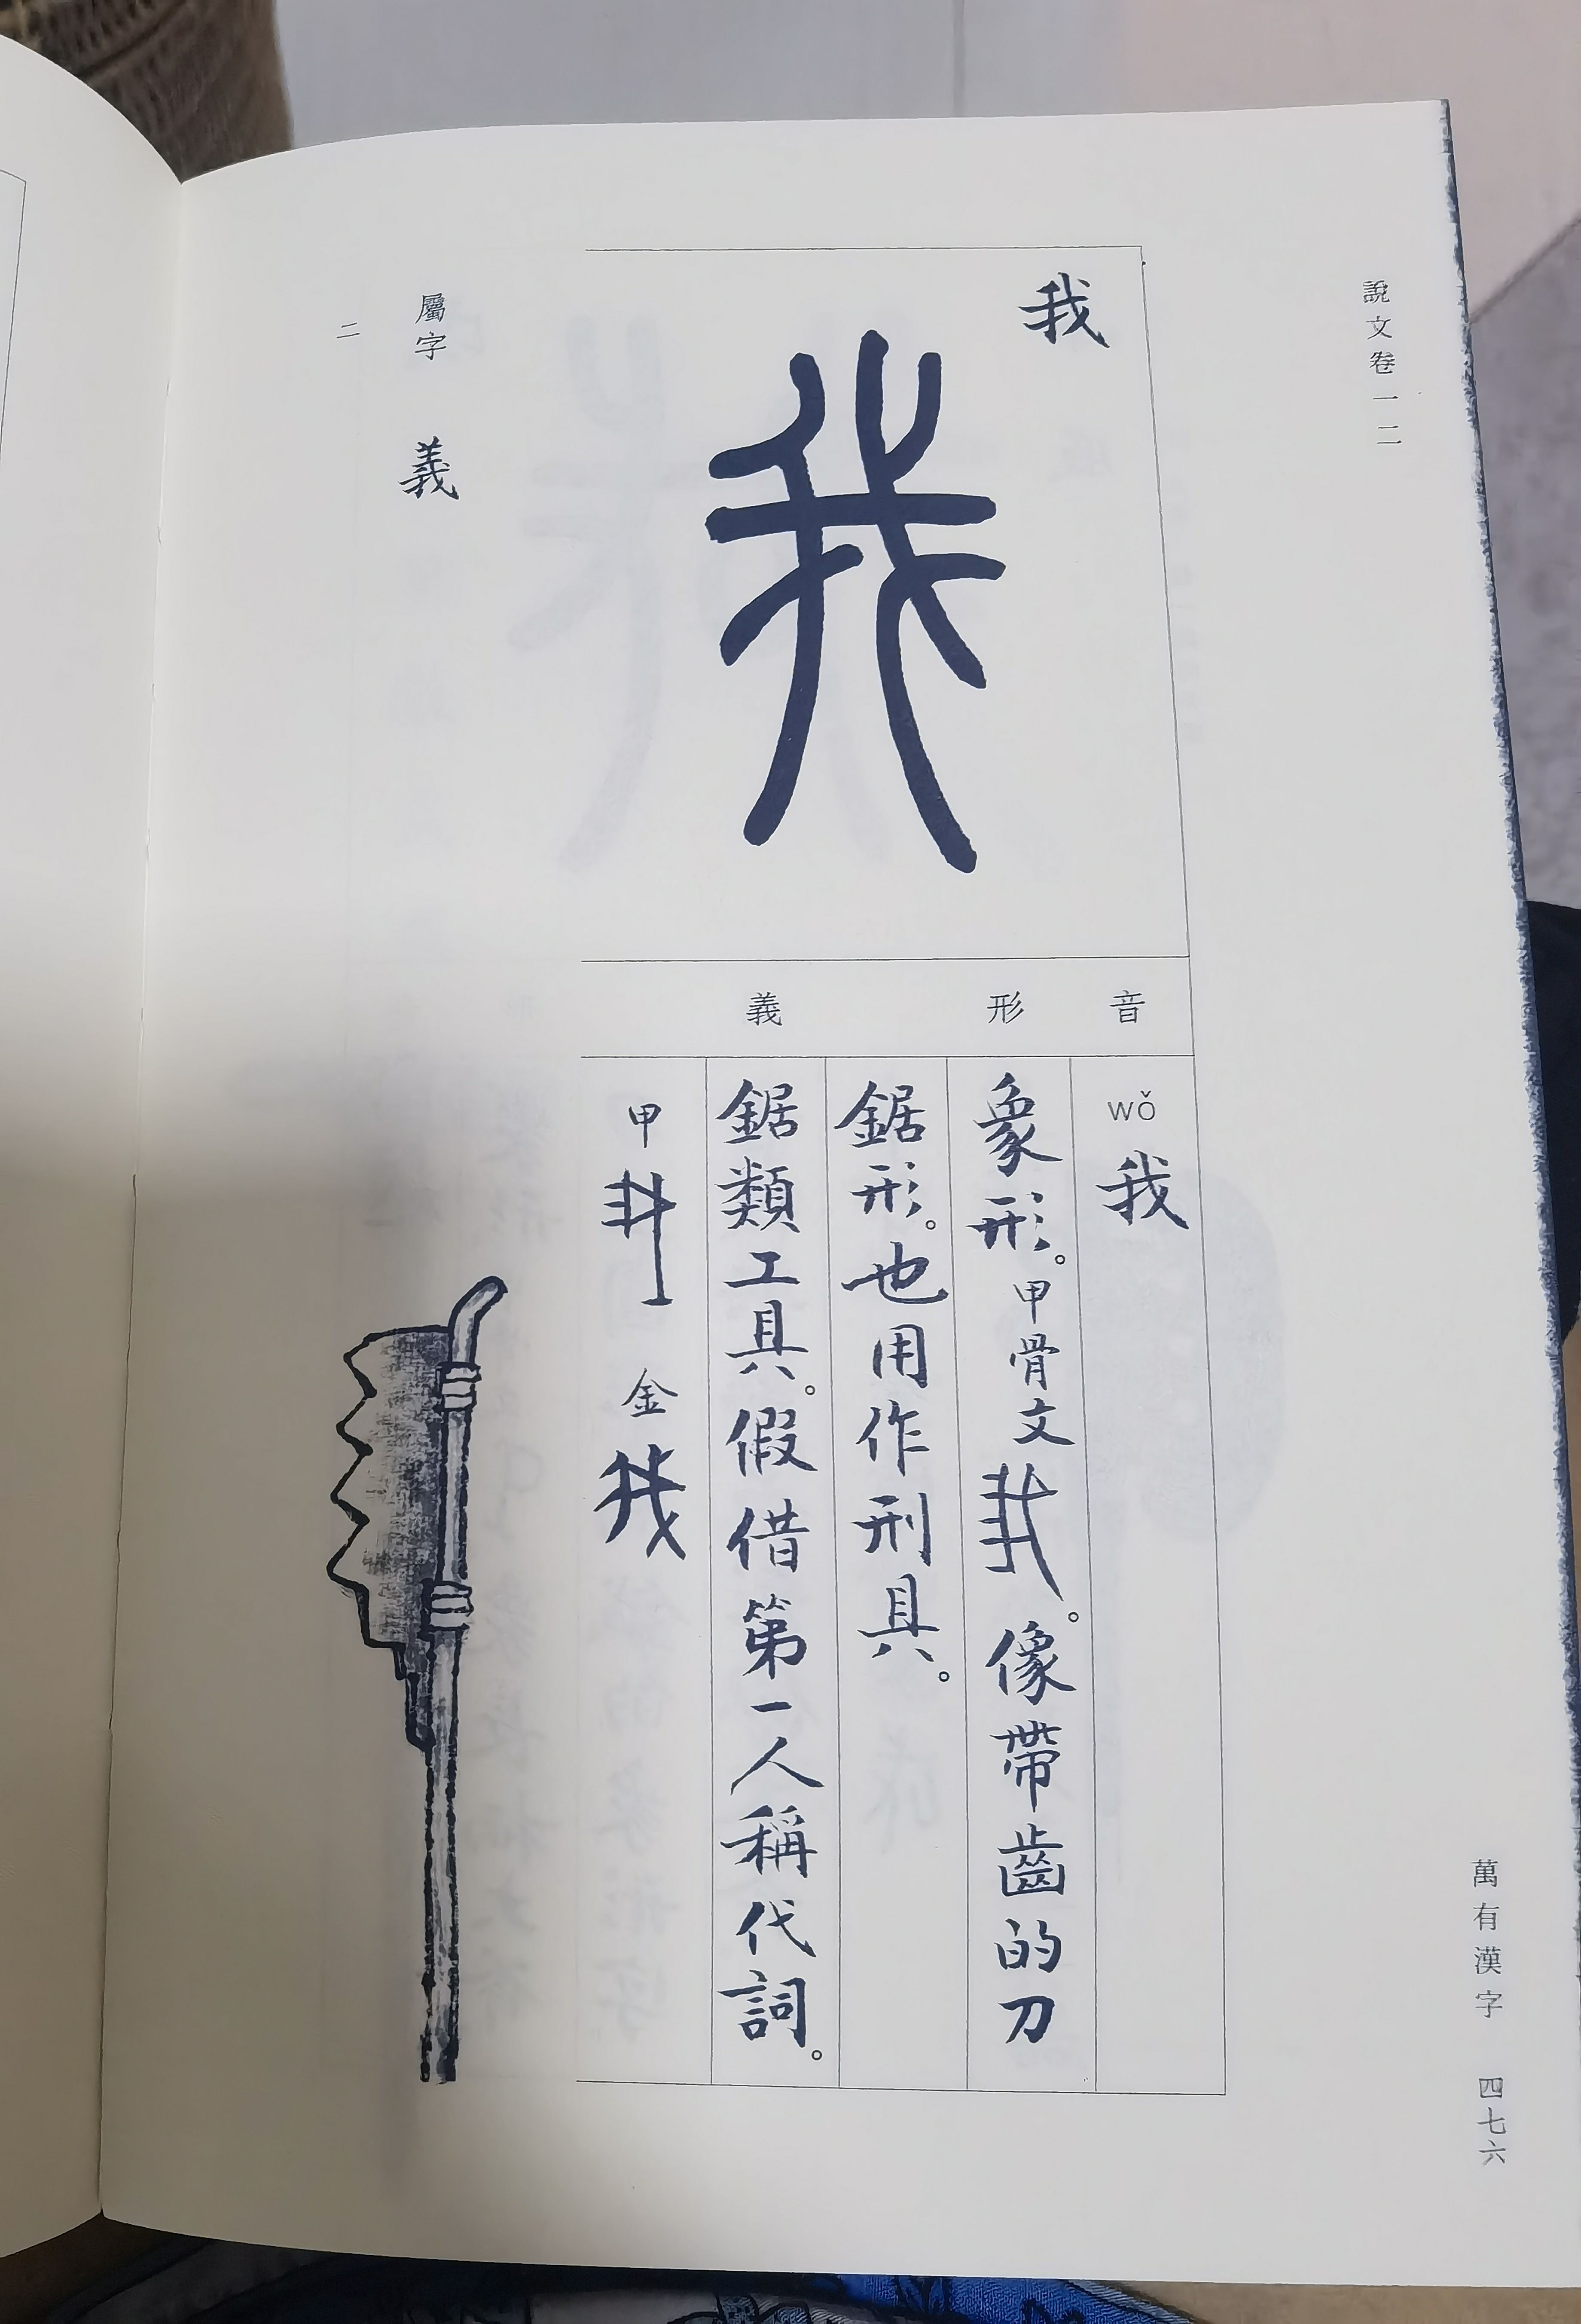 說文卷一二
萬有漢字 四七六
我
音
wǒ 我
形
象形。甲骨文。像帶齒的刀
鋸形。也用作刑具。
義
鋸類工具。假借第一人稱代詞。
甲 金
屬字 義
二